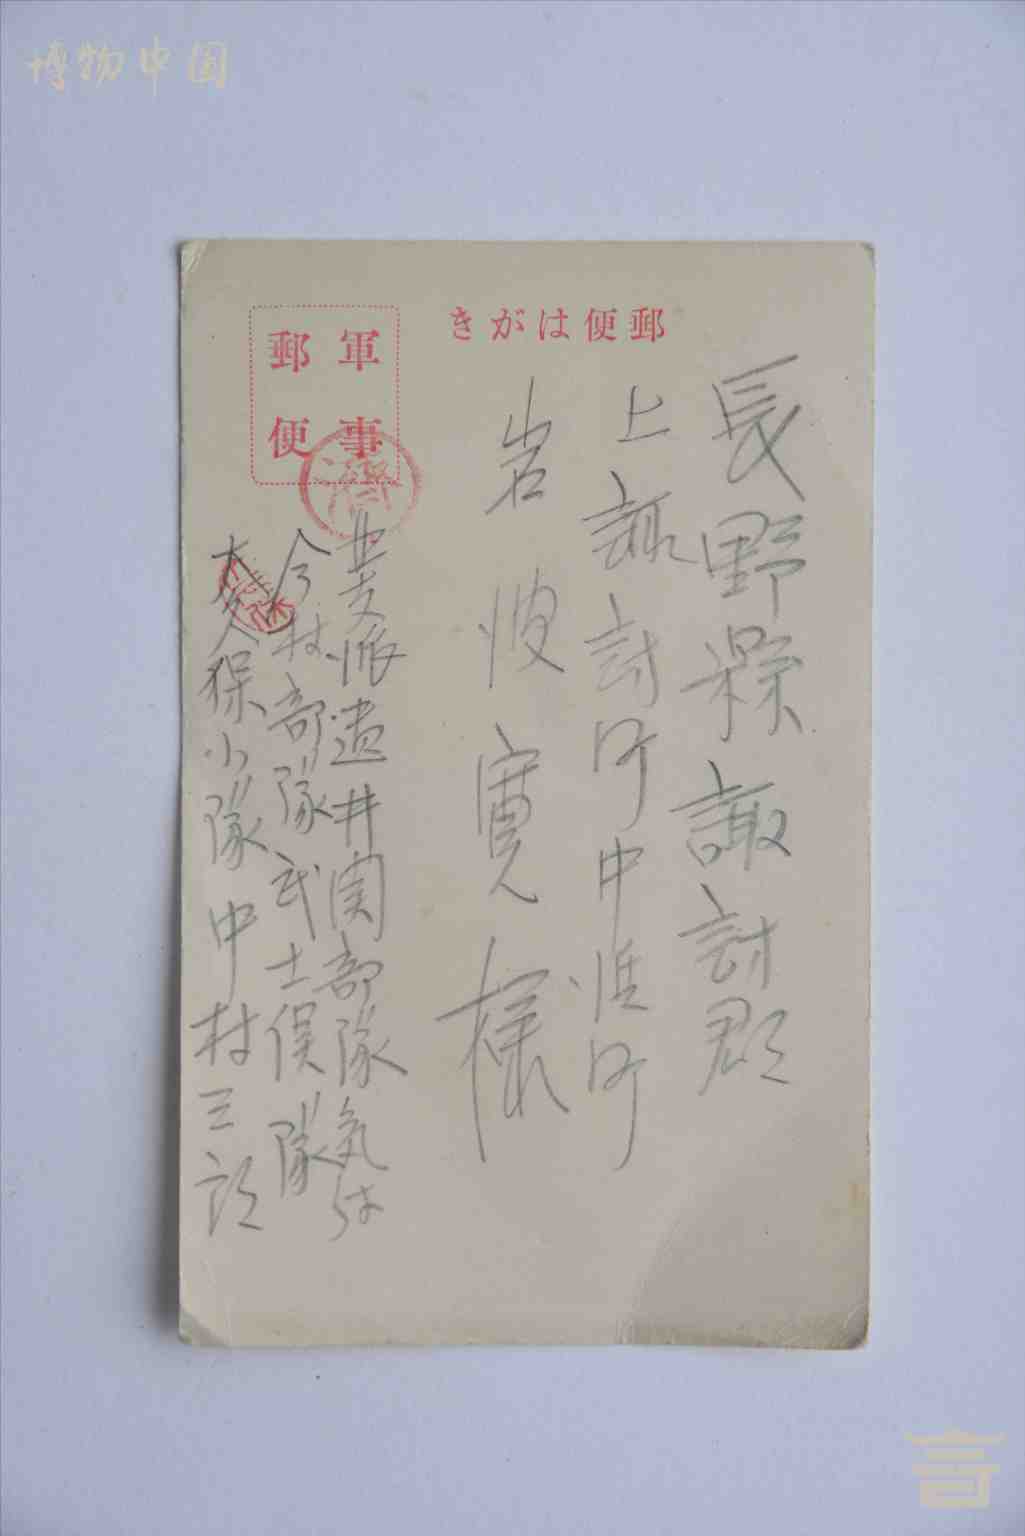 博物中国
郵便はがき
軍事
郵便
済
長野縣諏訪郡
上諏訪町中浜町
岩波寛様
北支派遣井関部隊気付
今村部隊武士俣隊
大久保小隊中村三郎
言